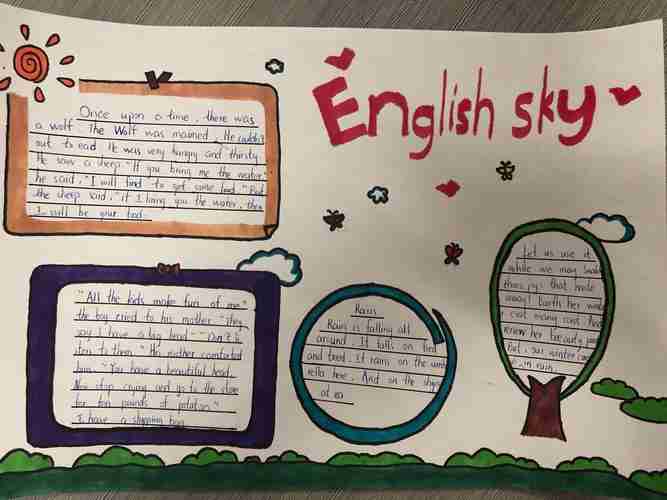 English sky
Once upon a time, there was
a wolf. The Wolf was mained, He couldn't
out to ead. He was very hungry and thirsty.
He saw a sheep. "If you bring me the water"
he said, "I will find to get some food." "But
the sheep said, "if I bring you the water, then
I will be your food.
"All the kids make fun of me"
the boy cried to his mother. "They
say I have a big head." "Don't li
sten to them." His mother comforted
him. "You have a beautiful head.
Now stop crying and go to the store
for ten pounds of potatos."
I have a shopping bag
Rain
Rain is falling all
around, It falls on field
and treed. It rains on the umb
rella here, And on the ships
at ea
Let us use it
while we may
those joys that haste
away! Earth her
cost many
renew her beauty
But, our winter
in rain.